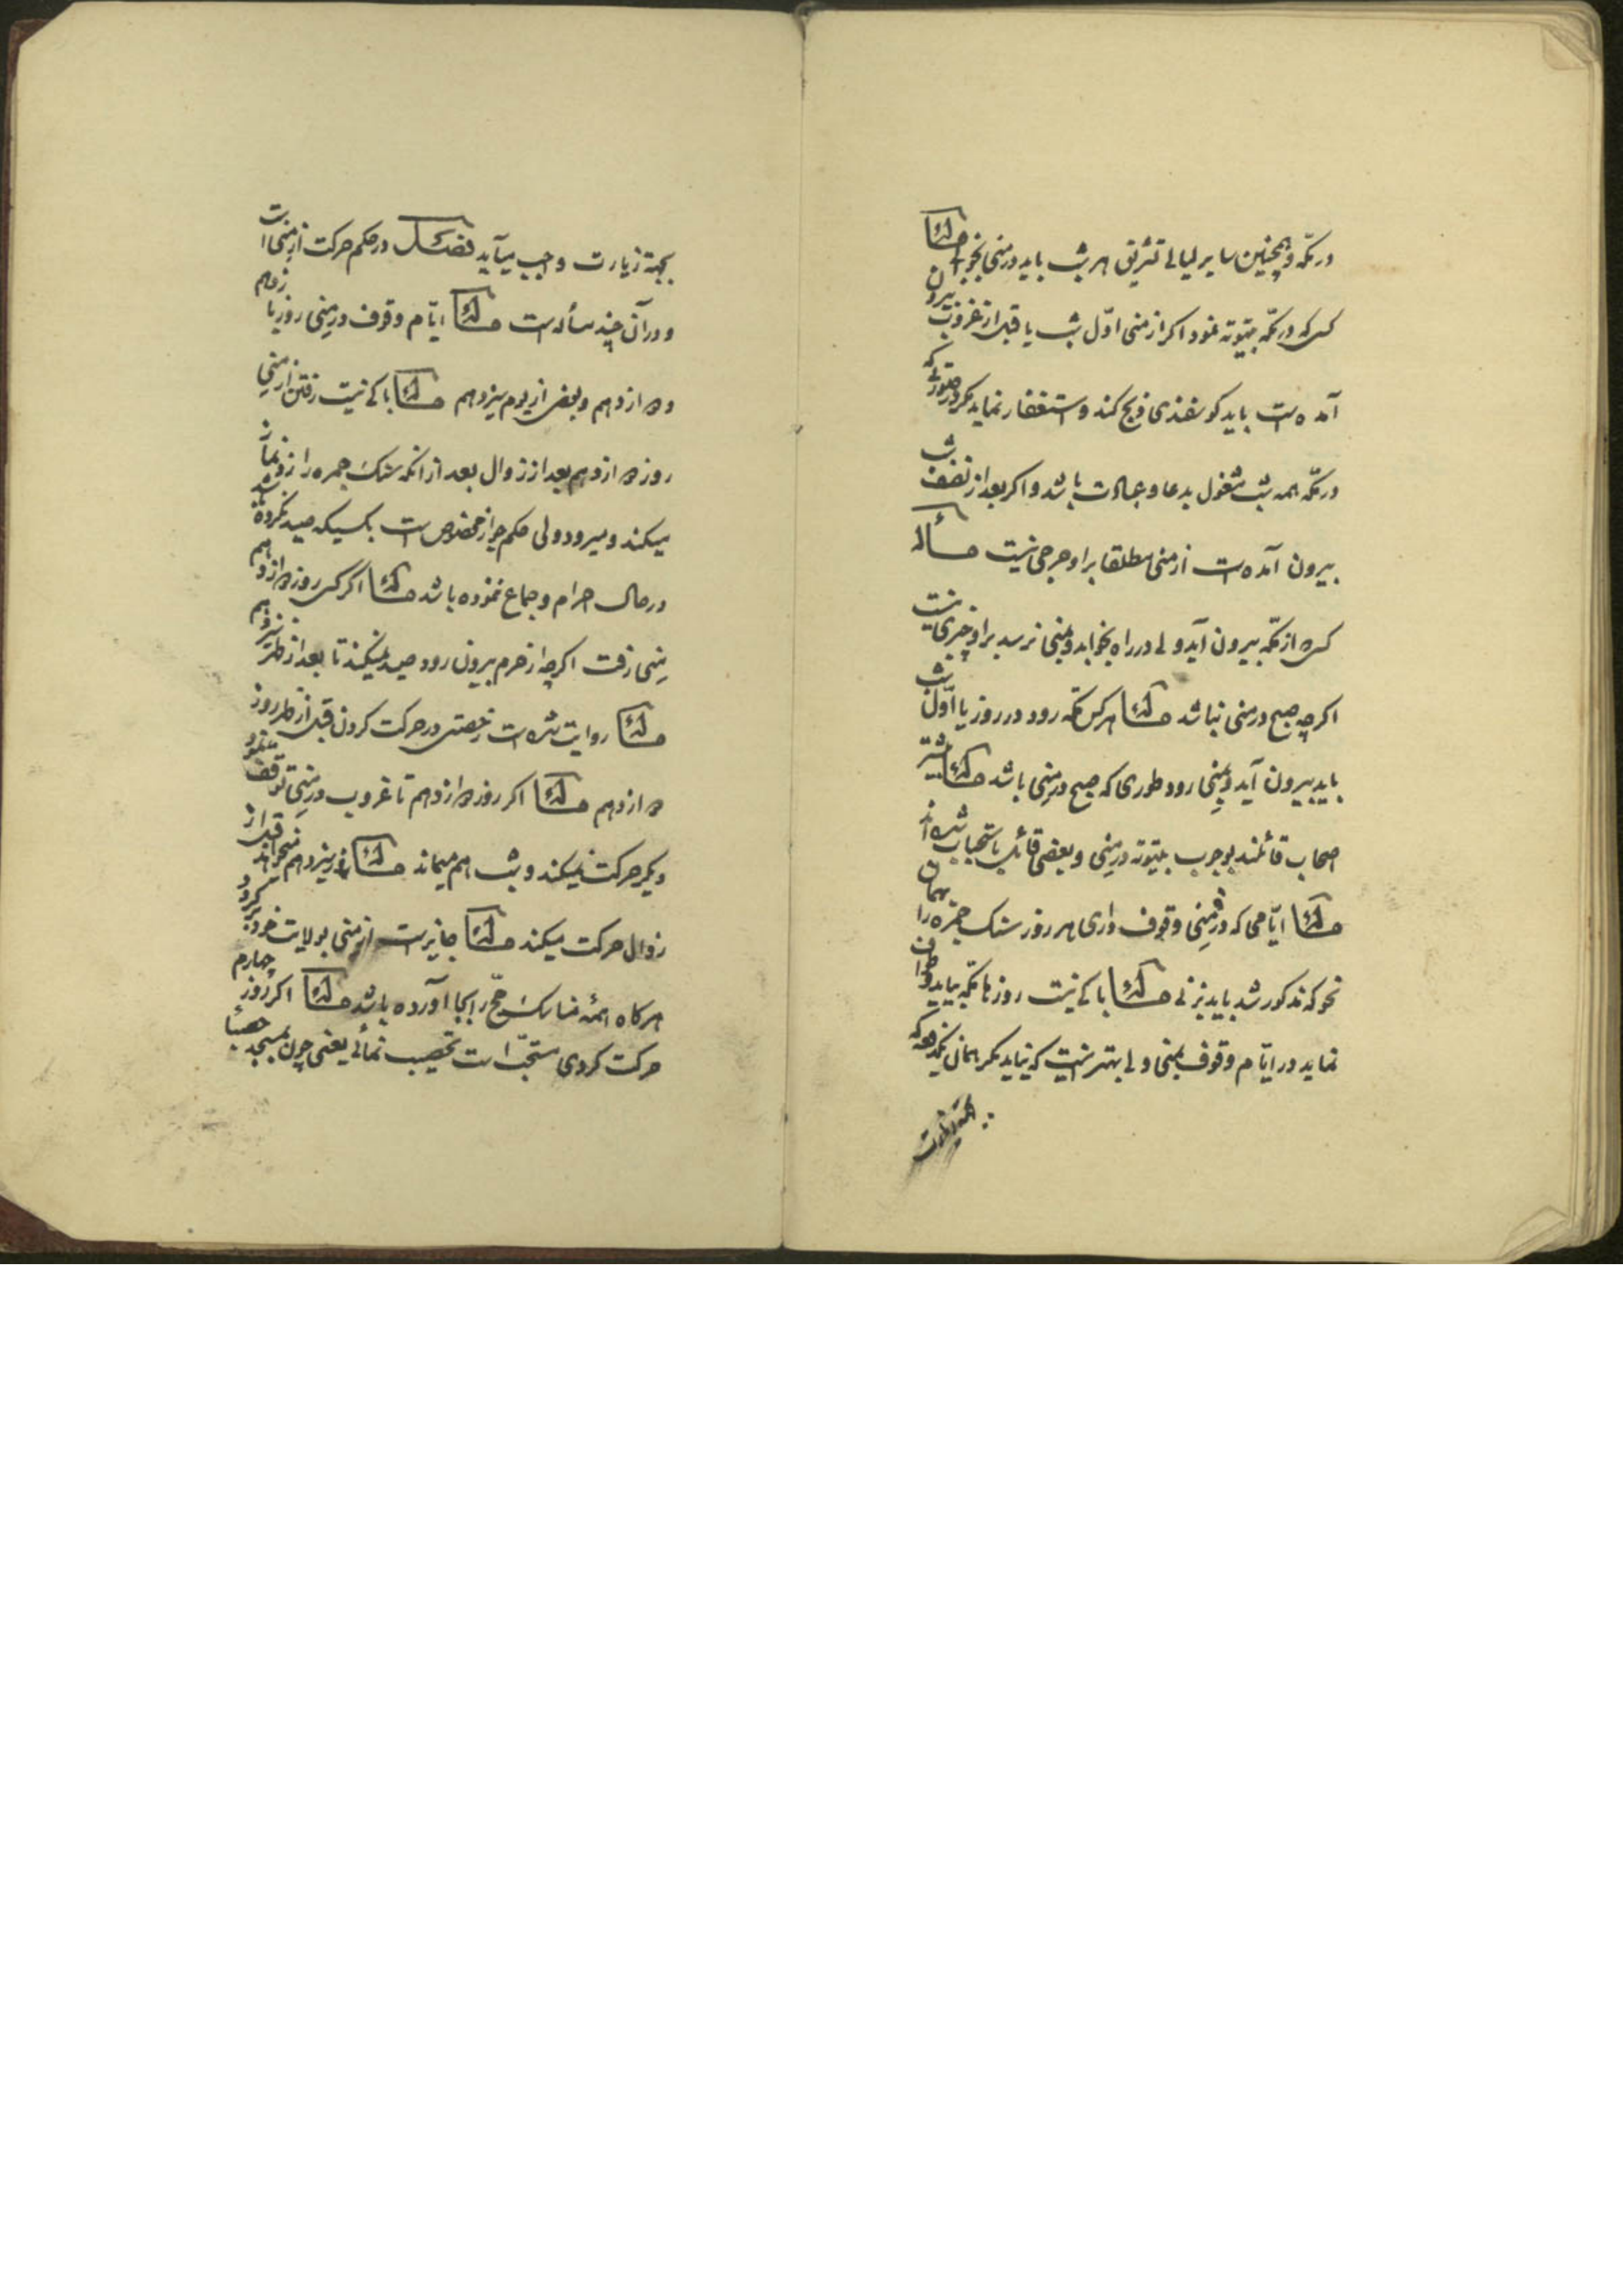 در مکّه و همچنین سایر لیالی تشریق هر شب باید در منی بخوابد مسئله
کسی که در مکّه بیتوته نمود اگر از منی اوّل شب یا قبل از غروب بیرون
آمده است باید گوسفندی ذبح کند و استغفار نماید مگر در صورتی که
در مکّه همه شب مشغول بدعا و عبادت باشد و اگر بعد از نصف شب
بیرون آمده است از منی مطلقا بر او حرجی نیست مسأله
کسی که از مکّه بیرون آید ولی در راه بخوابد و بمنی نرسد بر او چیزی نیست
اگرچه صبح در منی نباشد مسئله هر کس بمکّه رود در روز یا اوّل شب
باید بیرون آید و بمنی رود طوری که صبح در منی باشد مسئله بیشتر
اصحاب قائلند بوجوب بیتوته در منی و بعضی قائل باستحباب شده‌اند
مسئله ایّامی که در منی وقوف داری هر روز سنک جمره را بهمان
نحو که مذکور شد باید بزنی مسئله باکی نیست روزها بمکّه بیاید و طواف
نماید در ایّام وقوف بمنی ولی بهتر اینست که نیاید مگر همان یکدفعه که
بجهة زیارت واجب میآید فصل در حکم حرکت از منی است
و در آن چند مسأله است مسئله ایّام وقوف در منی روز یازدهم
و دوازدهم و بعض از یوم سیزدهم مسئله باکی نیست رفتن از منی
روز دوازدهم بعد از زوال بعد از آنکه سنک جمره را زد و نماز
میکند و میرود ولی حکم جواز مختص است بکسیکه صید نکرده باشد
در حال احرام و جماع ننموده باشد مسئله اگر کسی روز دوازدهم
منی رفت اگرچه از حرم بیرون رود صید نمیکند تا بعد از ظهر سیزدهم
مسئله روایت شده است رخصتی در حرکت کردن قبل از ظهر روز
دوازدهم مسئله اگر روز دوازدهم تا غروب در منی توقف نمود
دیگر حرکت نمیکند و شب هم میماند مسئله روز سیزدهم میخواهد قبل از
زوال حرکت میکند مسئله جایز است از منی بولایت خود برگردد
هرگاه همهٔ مناسک حجّ را بجا آورده باشد مسئله اگر روز چهارم
حرکت کردی مستحبّ است تحصیب نمائی یعنی چون بمسجد حصباء